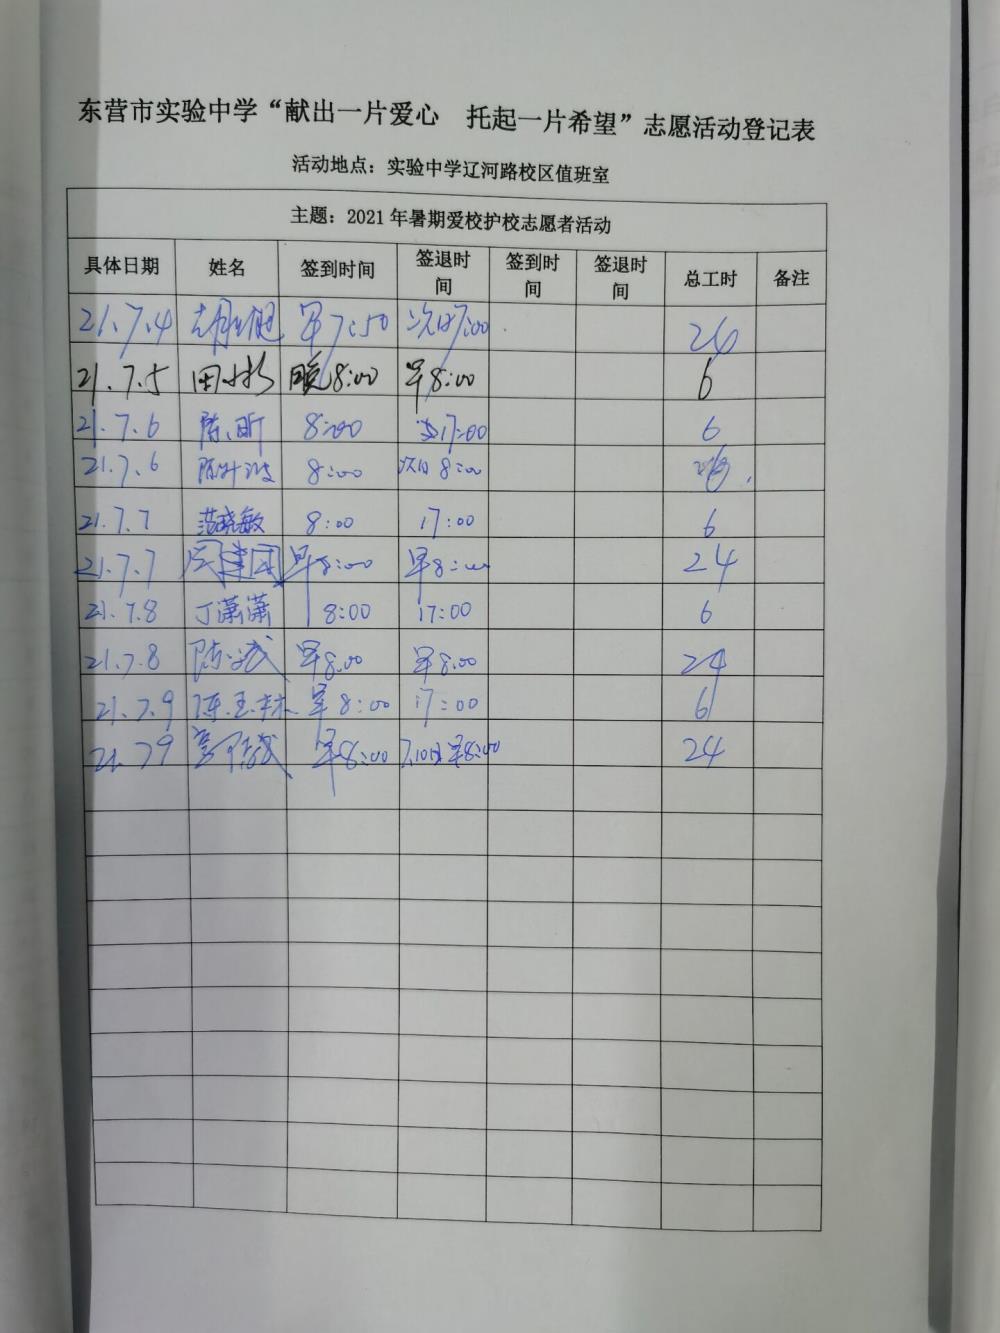 东营市实验中学“献出一片爱心 托起一片希望”志愿活动登记表
活动地点：实验中学辽河路校区值班室
主题：2021年暑期爱校护校志愿者活动
具体日期 姓名 签到时间 签退时间 签到时间 签退时间 总工时 备注
21.7.4 早7:50 次日7:00
21.7.5 田 晚8:00 早8:00 6
21.7.6 陈昕 8:00 17:00 6
21.7.6 陈 8:00 次日8:00
21.7.7 范晓敏 8:00 17:00 6
21.7.7 周建国 早8:00 早8:00 24
21.7.8 丁潇潇 8:00 17:00 6
21.7.8 陈 早8:00 早8:00 24
21.7.9 陈玉林 早8:00 17:00 6
21.7.9 早8:00 7.10日早8:00 24